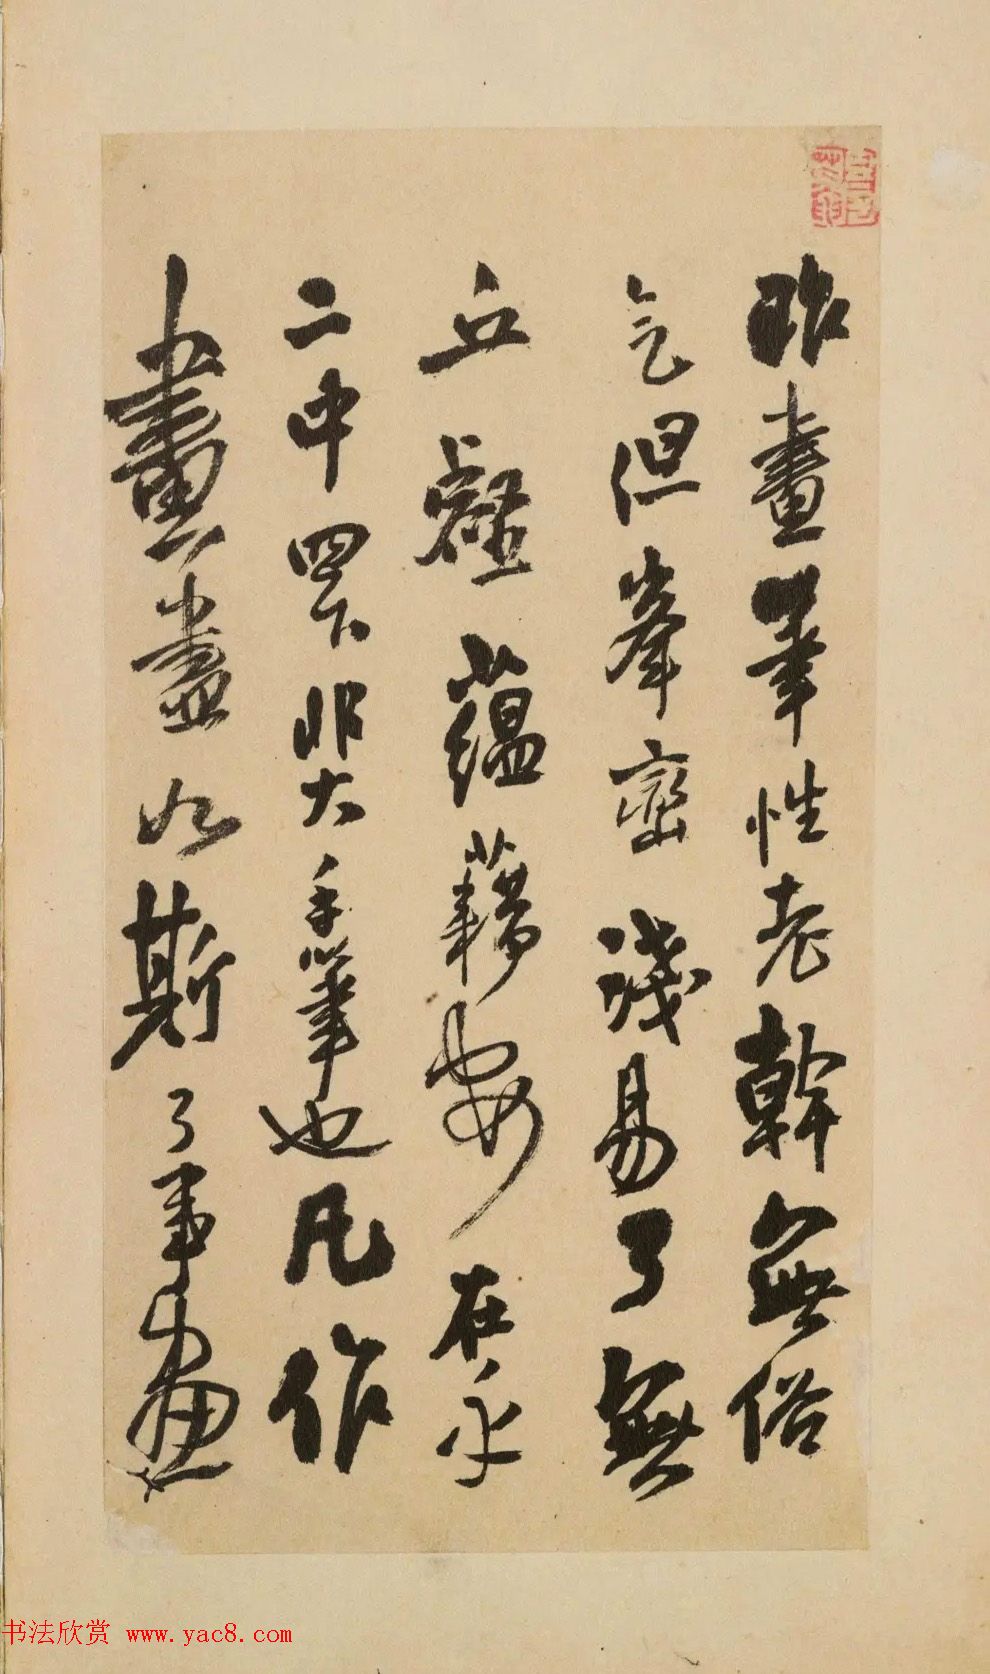 昨畫筆性老幹無俗
氣但峯巒淺易了無
丘壑蘊藉安在乎
二中四下非大手筆也凡作
畫盡如斯了事畫
书法欣赏 www.yac8.com